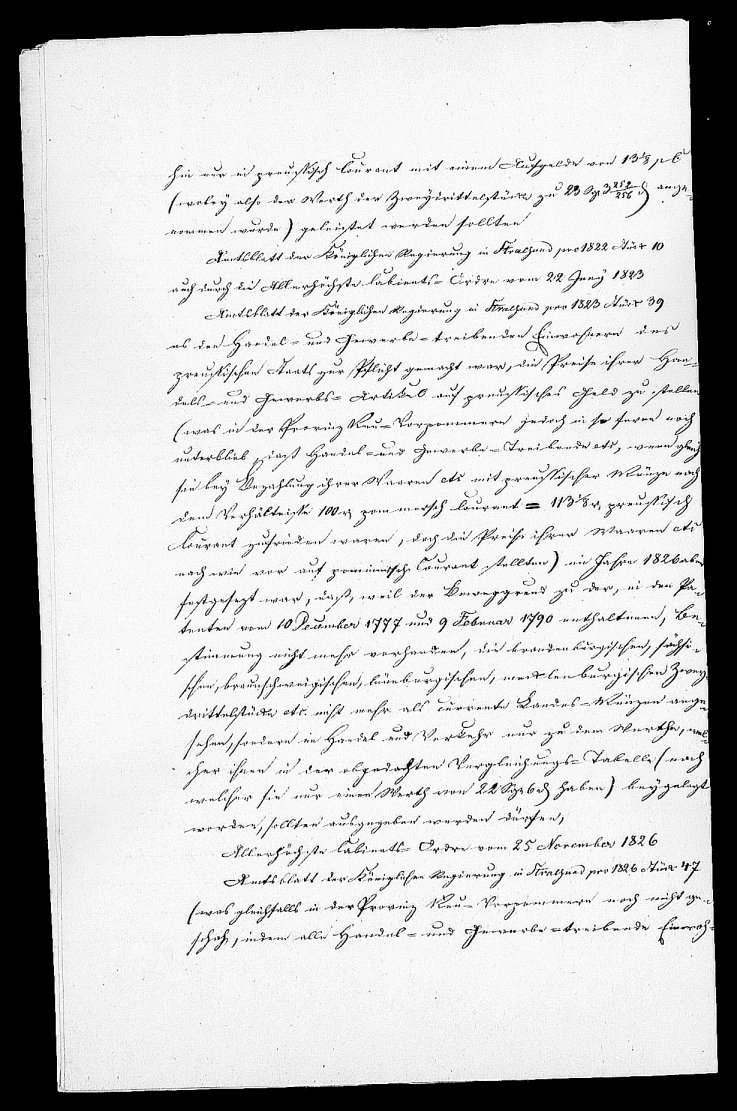 hin nur in preussisch Courant mit einem Aufgelde von 13⅓ p C
(wobey also der Werth der Zweydrittelstücke zu 23 Sgr 3 252/256 d) ange-
nommen wurde) geleistet werden sollten
Amtsblatt der Königlichen Regierung in Stralsund pro 1822 Stück 10
auch durch die Allerhöchste Cabinets-Ordre vom 22 Juny 1823
Amtsblatt der Königlichen Regierung in Stralsund pro 1823 Stück 39
es den Handel- und Gewerbe-treibenden Einwohnern des
preussischen Staats zur Pflicht gemacht war, die Preise ihrer Han-
dels- und Gewerbs-Artikel auf preussisches Geld zu stellen
(was in der Provinz Neu-Vorpommern jedoch in so ferne noch
unterblieb, daß Handel- und Gewerbe-Treibende etc, wenn gleich
sie bey Bezahlung ihrer Waaren etc mit preussischer Münze nach
dem Verhältnisse 100 r pommersch Courant = 113⅓ r, preussisch
Courant zufrieden waren, doch die Preise ihrer Waaren etc
nach wie vor auf pommersch Courant stellten) im Jahre 1826 aber
festgesezt war, daß, weil der Beweggrund zu der, in den Pa-
tenten vom 10 December 1777 und 9 Februar 1790 enthaltenen, Be-
stimmung nicht mehr vorhanden, die brandenburgischen, sächsi-
schen, braunschweigischen, lüneburgischen, mecklenburgischen Zwey-
drittelstücke etc. nicht mehr als currente Landes-Münzen ange-
sehen, sondern in Handel und Verkehr nur zu dem Werthe, wel-
cher ihnen in der obgedachten Vergleichungs-Tabelle (nach
welcher sie nur einen Werth von 22 Sgr 6 d haben) beygelegt
worden, sollten ausgegeben werden dürfen,
Allerhöchste Cabinets-Ordre vom 25 November 1826
Amtsblatt der Königlichen Regierung in Stralsund pro 1826 Stück 47
(was gleichfalls in der Provinz Neu-Vorpommern noch nicht ge-
schah, indem alle Handel- und Gewerbe-treibende Einwoh-